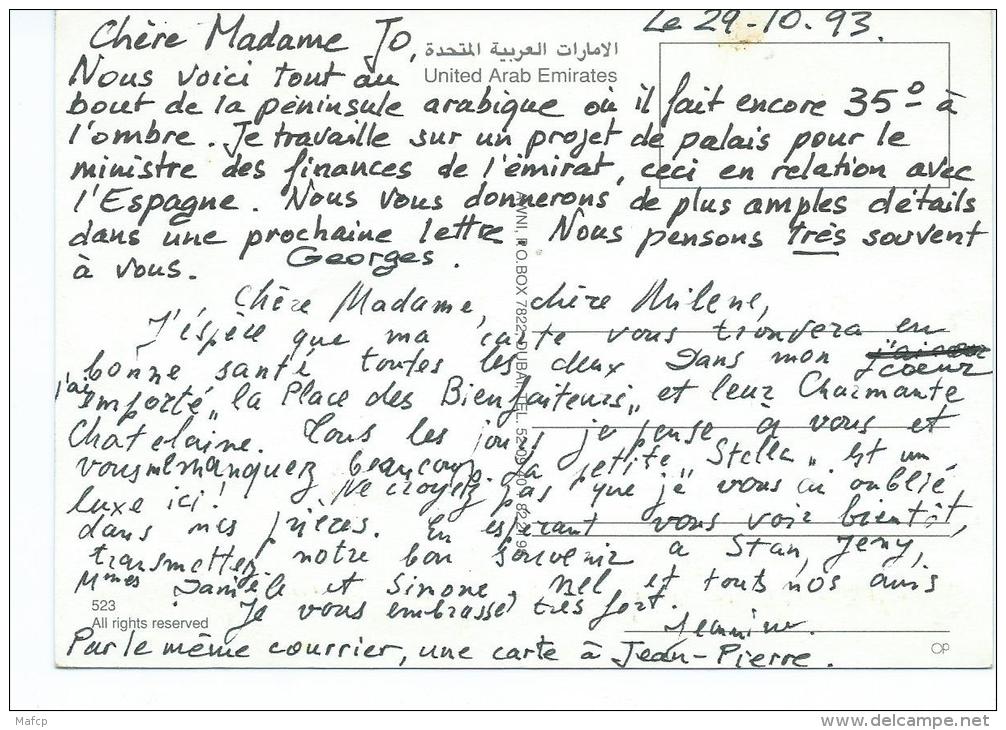 Le 29-10.93.
Chère Madame Jo,
الامارات العربية المتحدة
United Arab Emirates
Nous voici tout au
bout de la péninsule arabique où il fait encore 35° à
l'ombre. Je travaille sur un projet de palais pour le
ministre des finances de l'émirat, ceci en relation avec
l'Espagne. Nous vous donnerons de plus amples détails
dans une prochaine lettre Nous pensons très souvent
à vous. Georges.
Chère Madame, chère Milene,
J'éspère que ma carte vous trouvera en
bonne santé toutes les deux Dans mon coeur
j'ai emporté "la Place des Bienfaiteurs" et leur Charmante
Chatelaine. Tous les jours je pense à vous et
vous me manquez beaucoup. La petite "Stella" est un
luxe ici! Ne croyez pas que je vous ai oublié
dans mes prières. En espérant vous voir bientôt,
transmettez notre bon souvenir a Stan, Jeny,
Mmes Danièle et Simone, Mel et touts nos amis
Je vous embrasse très fort.
Jeannine.
Par le même courrier, une carte à Jean-Pierre.
523
All rights reserved
Mafcp
www.delcampe.net